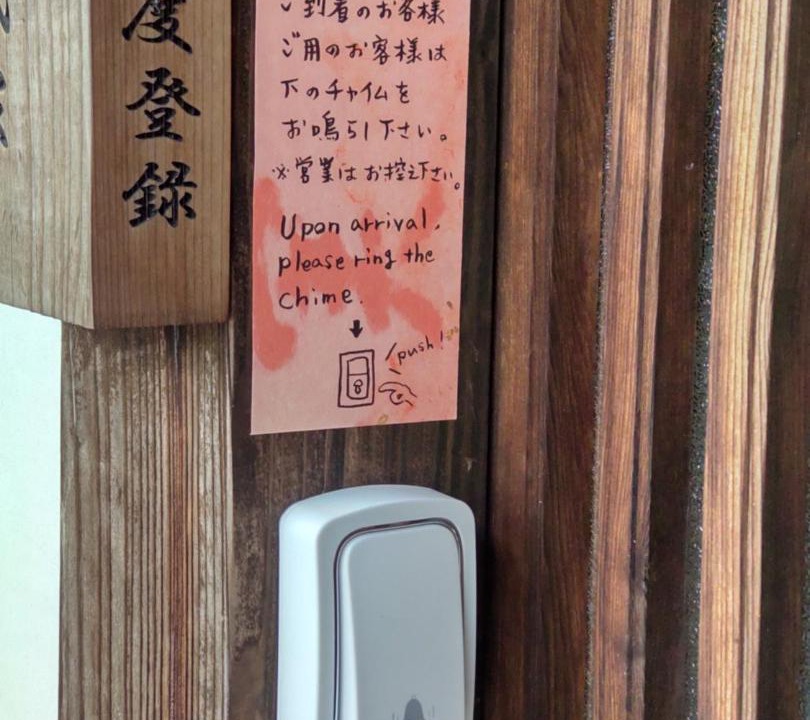 度登録
ご到着のお客様
ご用のお客様は
下のチャイムを
お鳴らし下さい。
※営業はお控え下さい。
Upon arrival,
please ring the
chime.
push!